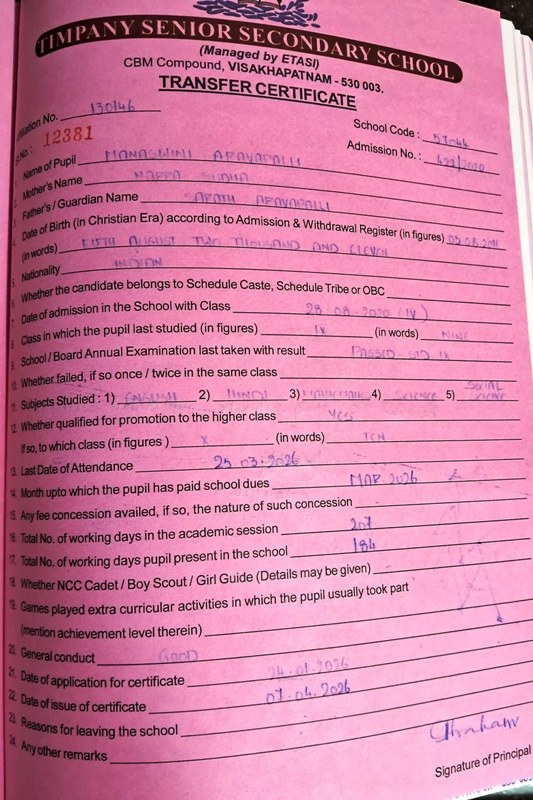 TIMPANY SENIOR SECONDARY SCHOOL
(Managed by ETASI)
CBM Compound, VISAKHAPATNAM - 530 003.
TRANSFER CERTIFICATE
Affiliation No. 130146
School Code :
Sl.No. : 12381
Admission No. : 422/2020
1. Name of Pupil MANASWINI ARAVAPALLI
2. Mother's Name SUDHA
3. Father's / Guardian Name ARAVAPALLI
4. Date of Birth (in Christian Era) according to Admission & Withdrawal Register (in figures) 05.08.2011
(in words) FIFTH AUGUST TWO THOUSAND AND ELEVEN
5. Nationality INDIAN
6. Whether the candidate belongs to Schedule Caste, Schedule Tribe or OBC
7. Date of admission in the School with Class 28.08.2020 (IV)
8. Class in which the pupil last studied (in figures) IX (in words) NINE
9. School / Board Annual Examination last taken with result PASSED STD IX
10. Whether failed, if so once / twice in the same class
11. Subjects Studied : 1) ENGLISH 2) HINDI 3) 4) SCIENCE 5) SOCIAL SCIENCE
12. Whether qualified for promotion to the higher class YES
If so, to which class (in figures ) X (in words) TEN
13. Last Date of Attendance 25.03.2026
14. Month upto which the pupil has paid school dues MAR 2026
15. Any fee concession availed, if so, the nature of such concession
16. Total No. of working days in the academic session 207
17. Total No. of working days pupil present in the school 184
18. Whether NCC Cadet / Boy Scout / Girl Guide (Details may be given)
19. Games played extra curricular activities in which the pupil usually took part
(mention achievement level therein)
20. General conduct GOOD
21. Date of application for certificate 24.01.2026
22. Date of issue of certificate 07.04.2026
23. Reasons for leaving the school
24. Any other remarks
Signature of Principal